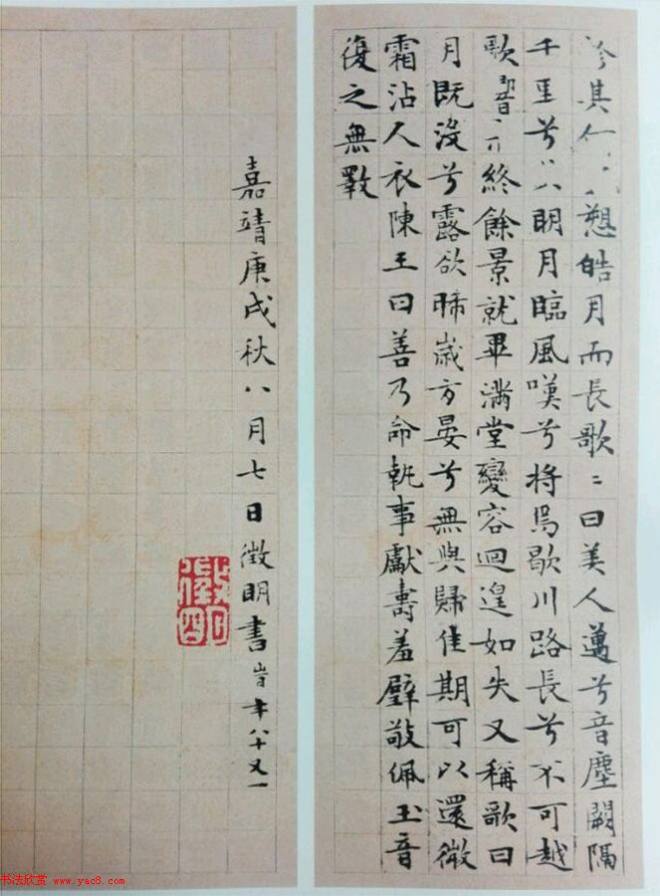 軫其愬皓月而長歌〻曰美人邁兮音塵闕隔
千里兮明月臨風嘆兮將焉歇川路長兮不可越
歌響終餘景就畢滿堂變容迴遑如失又稱歌曰
月既沒兮露欲晞歲方晏兮無與歸佳期可以還微
霜沾人衣陳王曰善乃命執事獻壽羞璧敬佩玉音
復之無斁
嘉靖庚戌秋八月七日徵明書旹年八十又一
书法欣赏 www.yac8.com